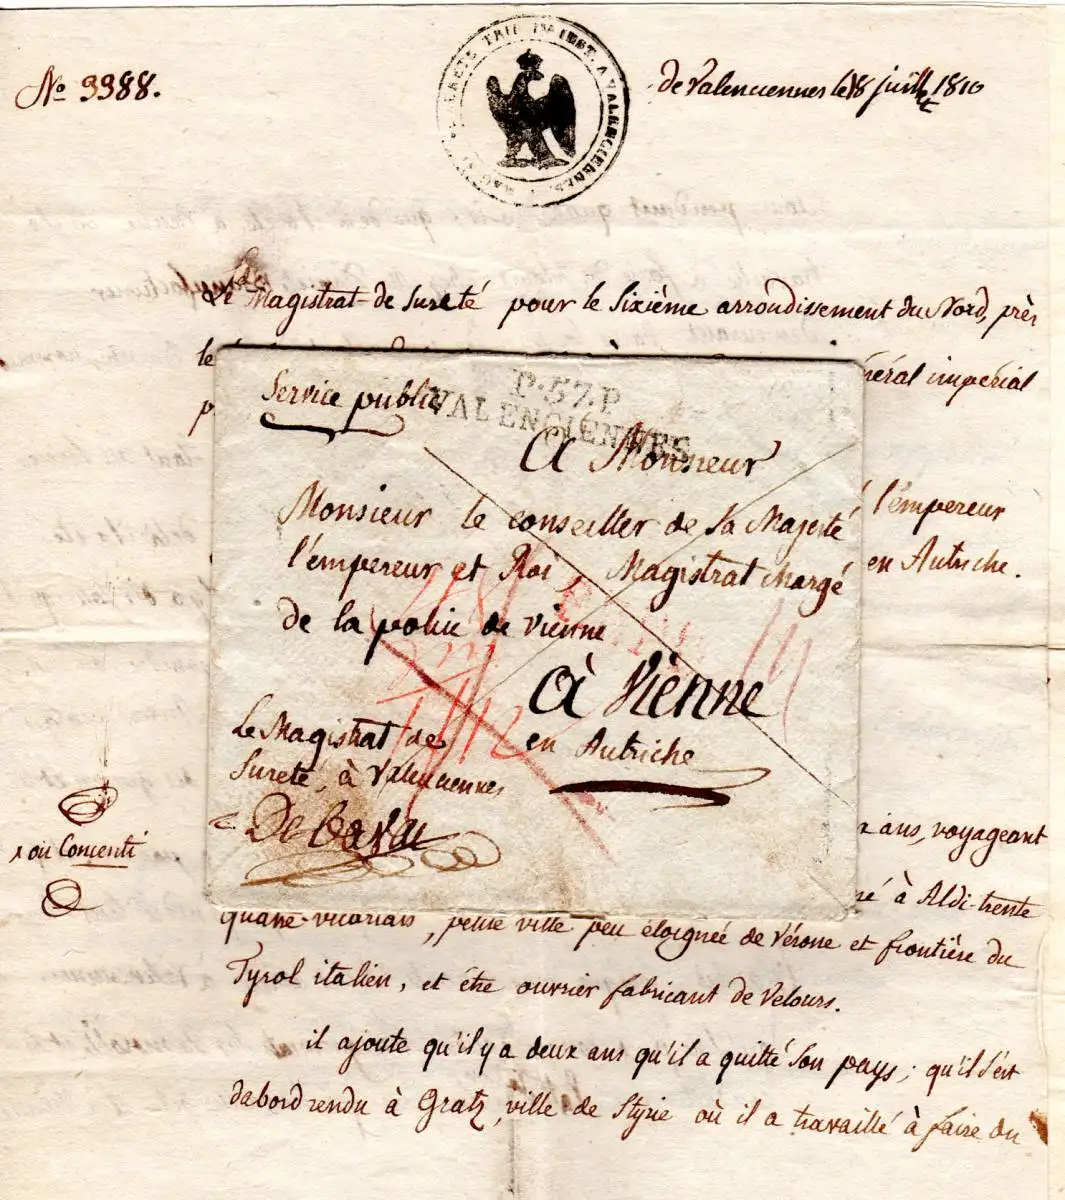 No 3388.
TRIB. 1RE INST. A VALENCIENNES
de Valenciennes le 18 juillet 1810
Le Magistrat de Sureté pour le Sixième arrondissement du Nord, près
le
néral impérial
p
Service public
P.57.P
VALENCIENNES
A Monsieur
Monsieur le conseiller de Sa Majesté
l'empereur
l'empereur et Roi, Magistrat chargé
en Autriche.
de la police de Vienne
à Vienne
en Autriche
Le Magistrat de
Sureté, à Valenciennes
ans, voyageant
x ou Comenti
né à Aldi-trente
quatre-vicariats, petite ville peu éloignée de Vérone et frontière du
Tyrol italien, et être ouvrier fabricant de Velours.
il ajoute qu'il y a deux ans qu'il a quitté Son pays; qu'il S'est
dabord rendu à Gratz, ville de Styrie où il a travaillé à faire du